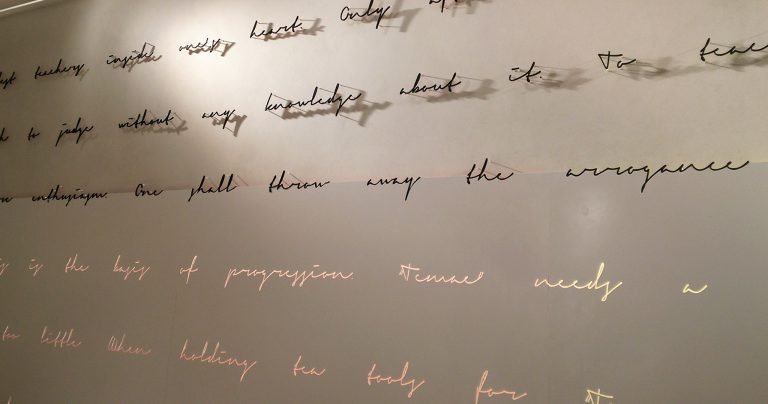 inside one's heart. Only
to judge without any knowledge about it. To
enthusiasm. One shall throw away the arrogance
is the basis of progression. Temae needs a
too little When holding tea tools for